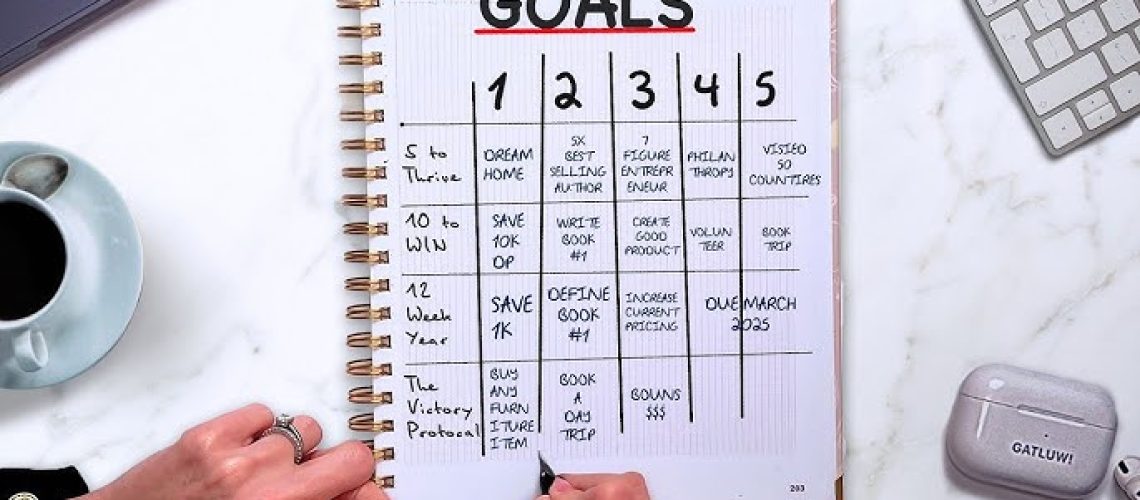 GOALS
1 2 3 4 5
5 to
Thrive
DREAM
HOME
5X
BEST
SELLING
AUTHOR
7
FIGURE
ENTREPR
ENEUR
PHILAN
THROPY
VISIED
50
COUNTIRES
10 to
WIN
SAVE
10K
OP
WRITE
BOOK
#1
CREATE
GOOD
PRODUCT
VOLUN
TEER
BOOK
TRIP
12
Week
Year
SAVE
1K
DEFINE
BOOK
#1
INCREASE
CURRENT
PRICING
DUE MARCH
2025
The
Victory
Protocal
BUY
ANY
FURN
ITURE
ITEM
BOOK
A
DAY
TRIP
BOUNS
$$$
203
GATLUW!